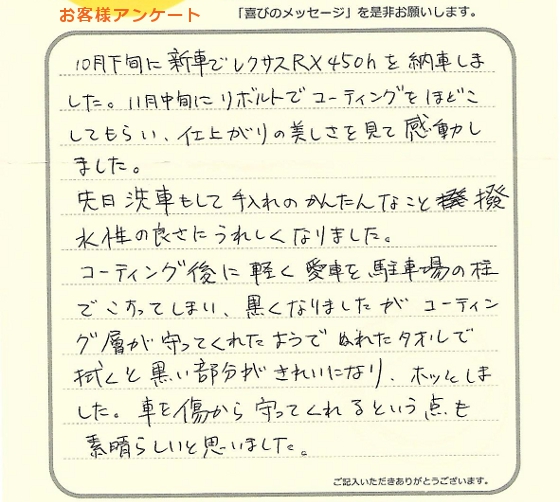 お客様アンケート 「喜びのメッセージ」を是非お願いします。
10月下旬に新車でレクサスRX450hを納車しま
した。11月中旬にリボルトでコーティングをほどこ
してもらい、仕上がりの美しさを見て感動し
ました。
先日洗車もして手入れのかんたんなこと撥
水性の良さにうれしくなりました。
コーティング後に軽く愛車を駐車場の柱
でこすってしまい、黒くなりましたがコーティン
グ層が守ってくれたようでぬれたタオルで
拭くと黒い部分がきれいになり、ホッとしま
した。車を傷から守ってくれるという点も
素晴らしいと思いました。
ご記入いただきありがとうございます。